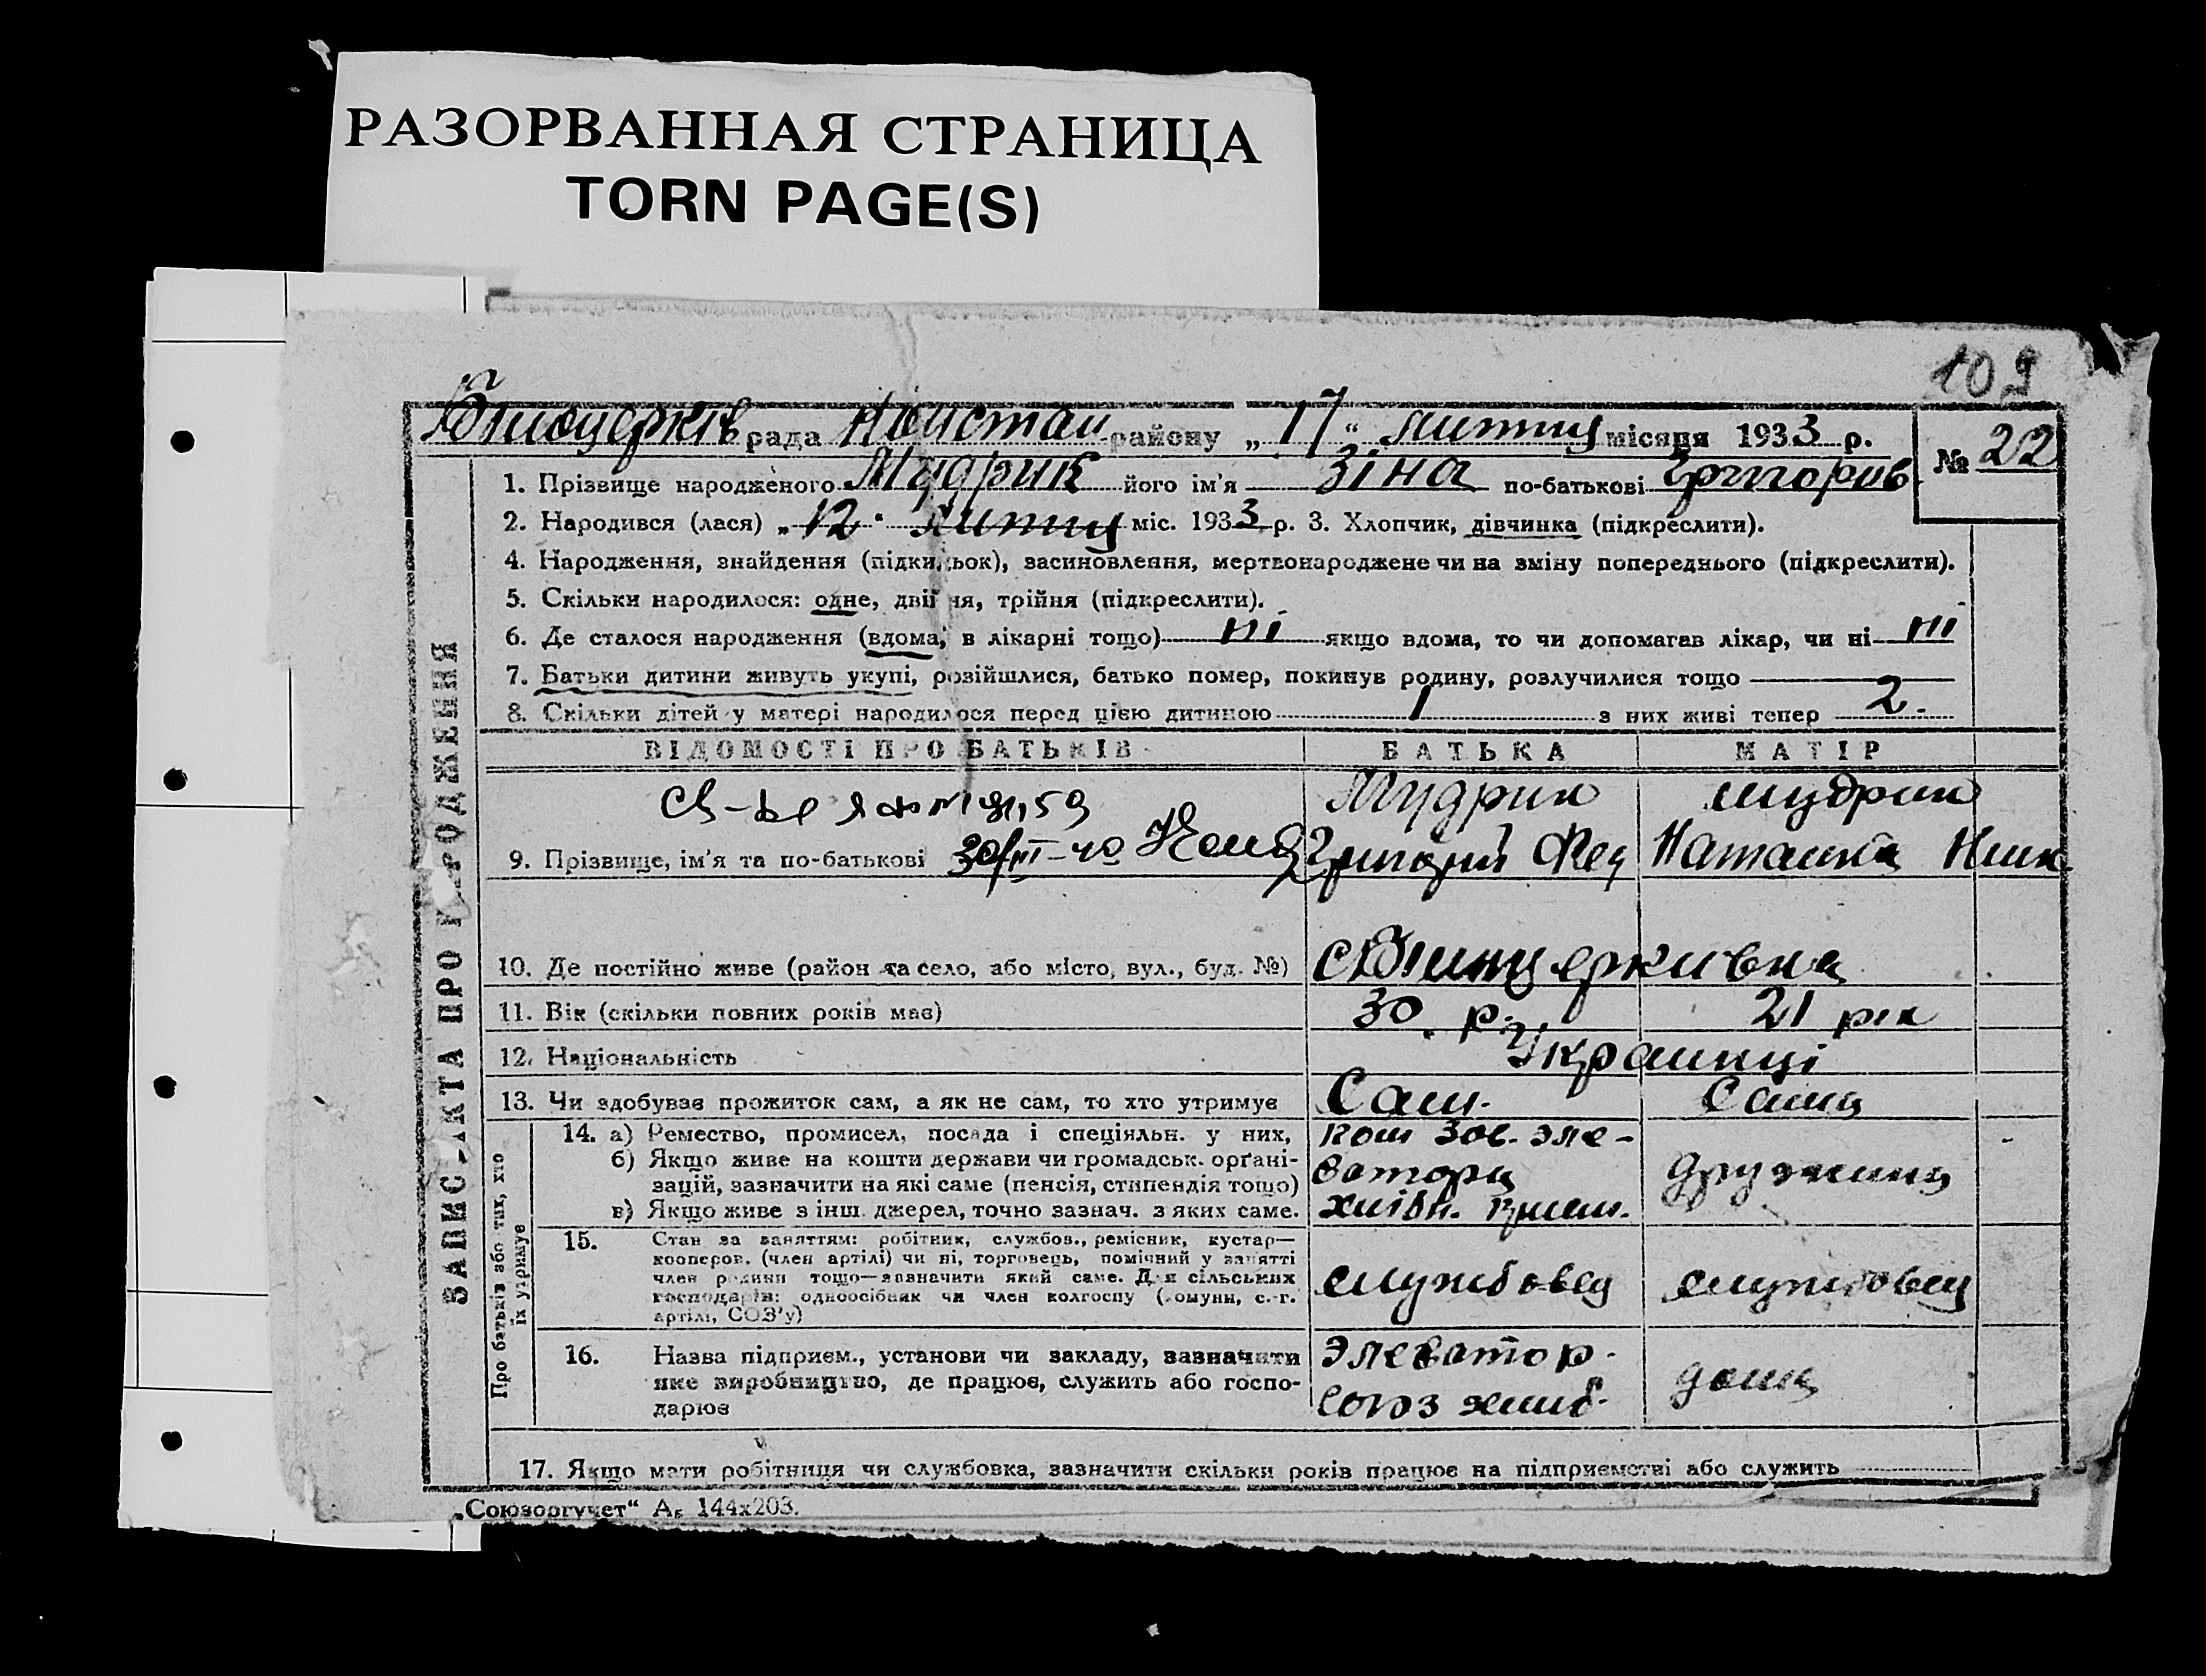 РАЗОРВАННАЯ СТРАНИЦА
TORN PAGE(S)
109
Білоцерків рада район у „17“ лютня місяця 1933 р.
№ 22
1. Прізвище народженого Мудрик його ім'я Зіна по-батькові Григоров.
2. Народився (лася) „12“ лютня міс. 1933 р. 3. Хлопчик, дівчинка (підкреслити).
4. Народження, знайдення (підкидьок), засиновлення, мертвонароджене чи на зміну попереднього (підкреслити).
5. Скільки народилося: одне, двійня, трійня (підкреслити).
6. Де сталося народження (вдома, в лікарні тощо) ні якщо вдома, то чи допомагав лікар, чи ні ні
7. Батьки дитини живуть укупі, розійшлися, батько помер, покинув родину, розлучилися тощо
8. Скільки дітей у матері народилося перед цією дитиною 1 з них живі тепер 2.
ЗАПИС АКТА ПРО НАРОДЖЕННЯ
ВІДОМОСТІ ПРО БАТЬКІВ БАТЬКА МАТІР
Мудрик Мудрик
9. Прізвище, ім'я та по-батькові Григорій Фед Наталка Ник.
10. Де постійно живе (район та село, або місто, вул., буд. №)
11. Вік (скільки повних років має) 30 р. 21 рік
12. Національність Украинці
13. Чи здобуває прожиток сам, а як не сам, то хто утримує Сам. Сама
Про батьків або тих, хто їх утримує
14. а) Ремество, промисел, посада і спеціяльн. у них, пом зов. эле-
б) Якщо живе на кошти держави чи громадськ. орґані-
зацій, зазначити на які саме (пенсія, стипендія тощо) ватора дружина
в) Якщо живе з інш. джерел, точно зазнач. з яких саме.
15. Стан за заняттям: робітник, службов., ремісник, кустар—
кооперов. (член артілі) чи ні, торговець, помічний у занятті
член родини тощо—зазначити який саме. Для сільських
господарів: одноосібник чи член колгоспу (комуни, с.-г.
артілі, СОЗ'у)
службовец службовец
16. Назва підприєм., установи чи закладу, зазначити Элеватор.
яке виробництво, де працює, служить або госпо-
дарює союз хліб. дома
17. Якщо мати робітниця чи службовка, зазначити скільки років працює на підприємстві або служить
„Союзоргучет“ А₆ 144х203.